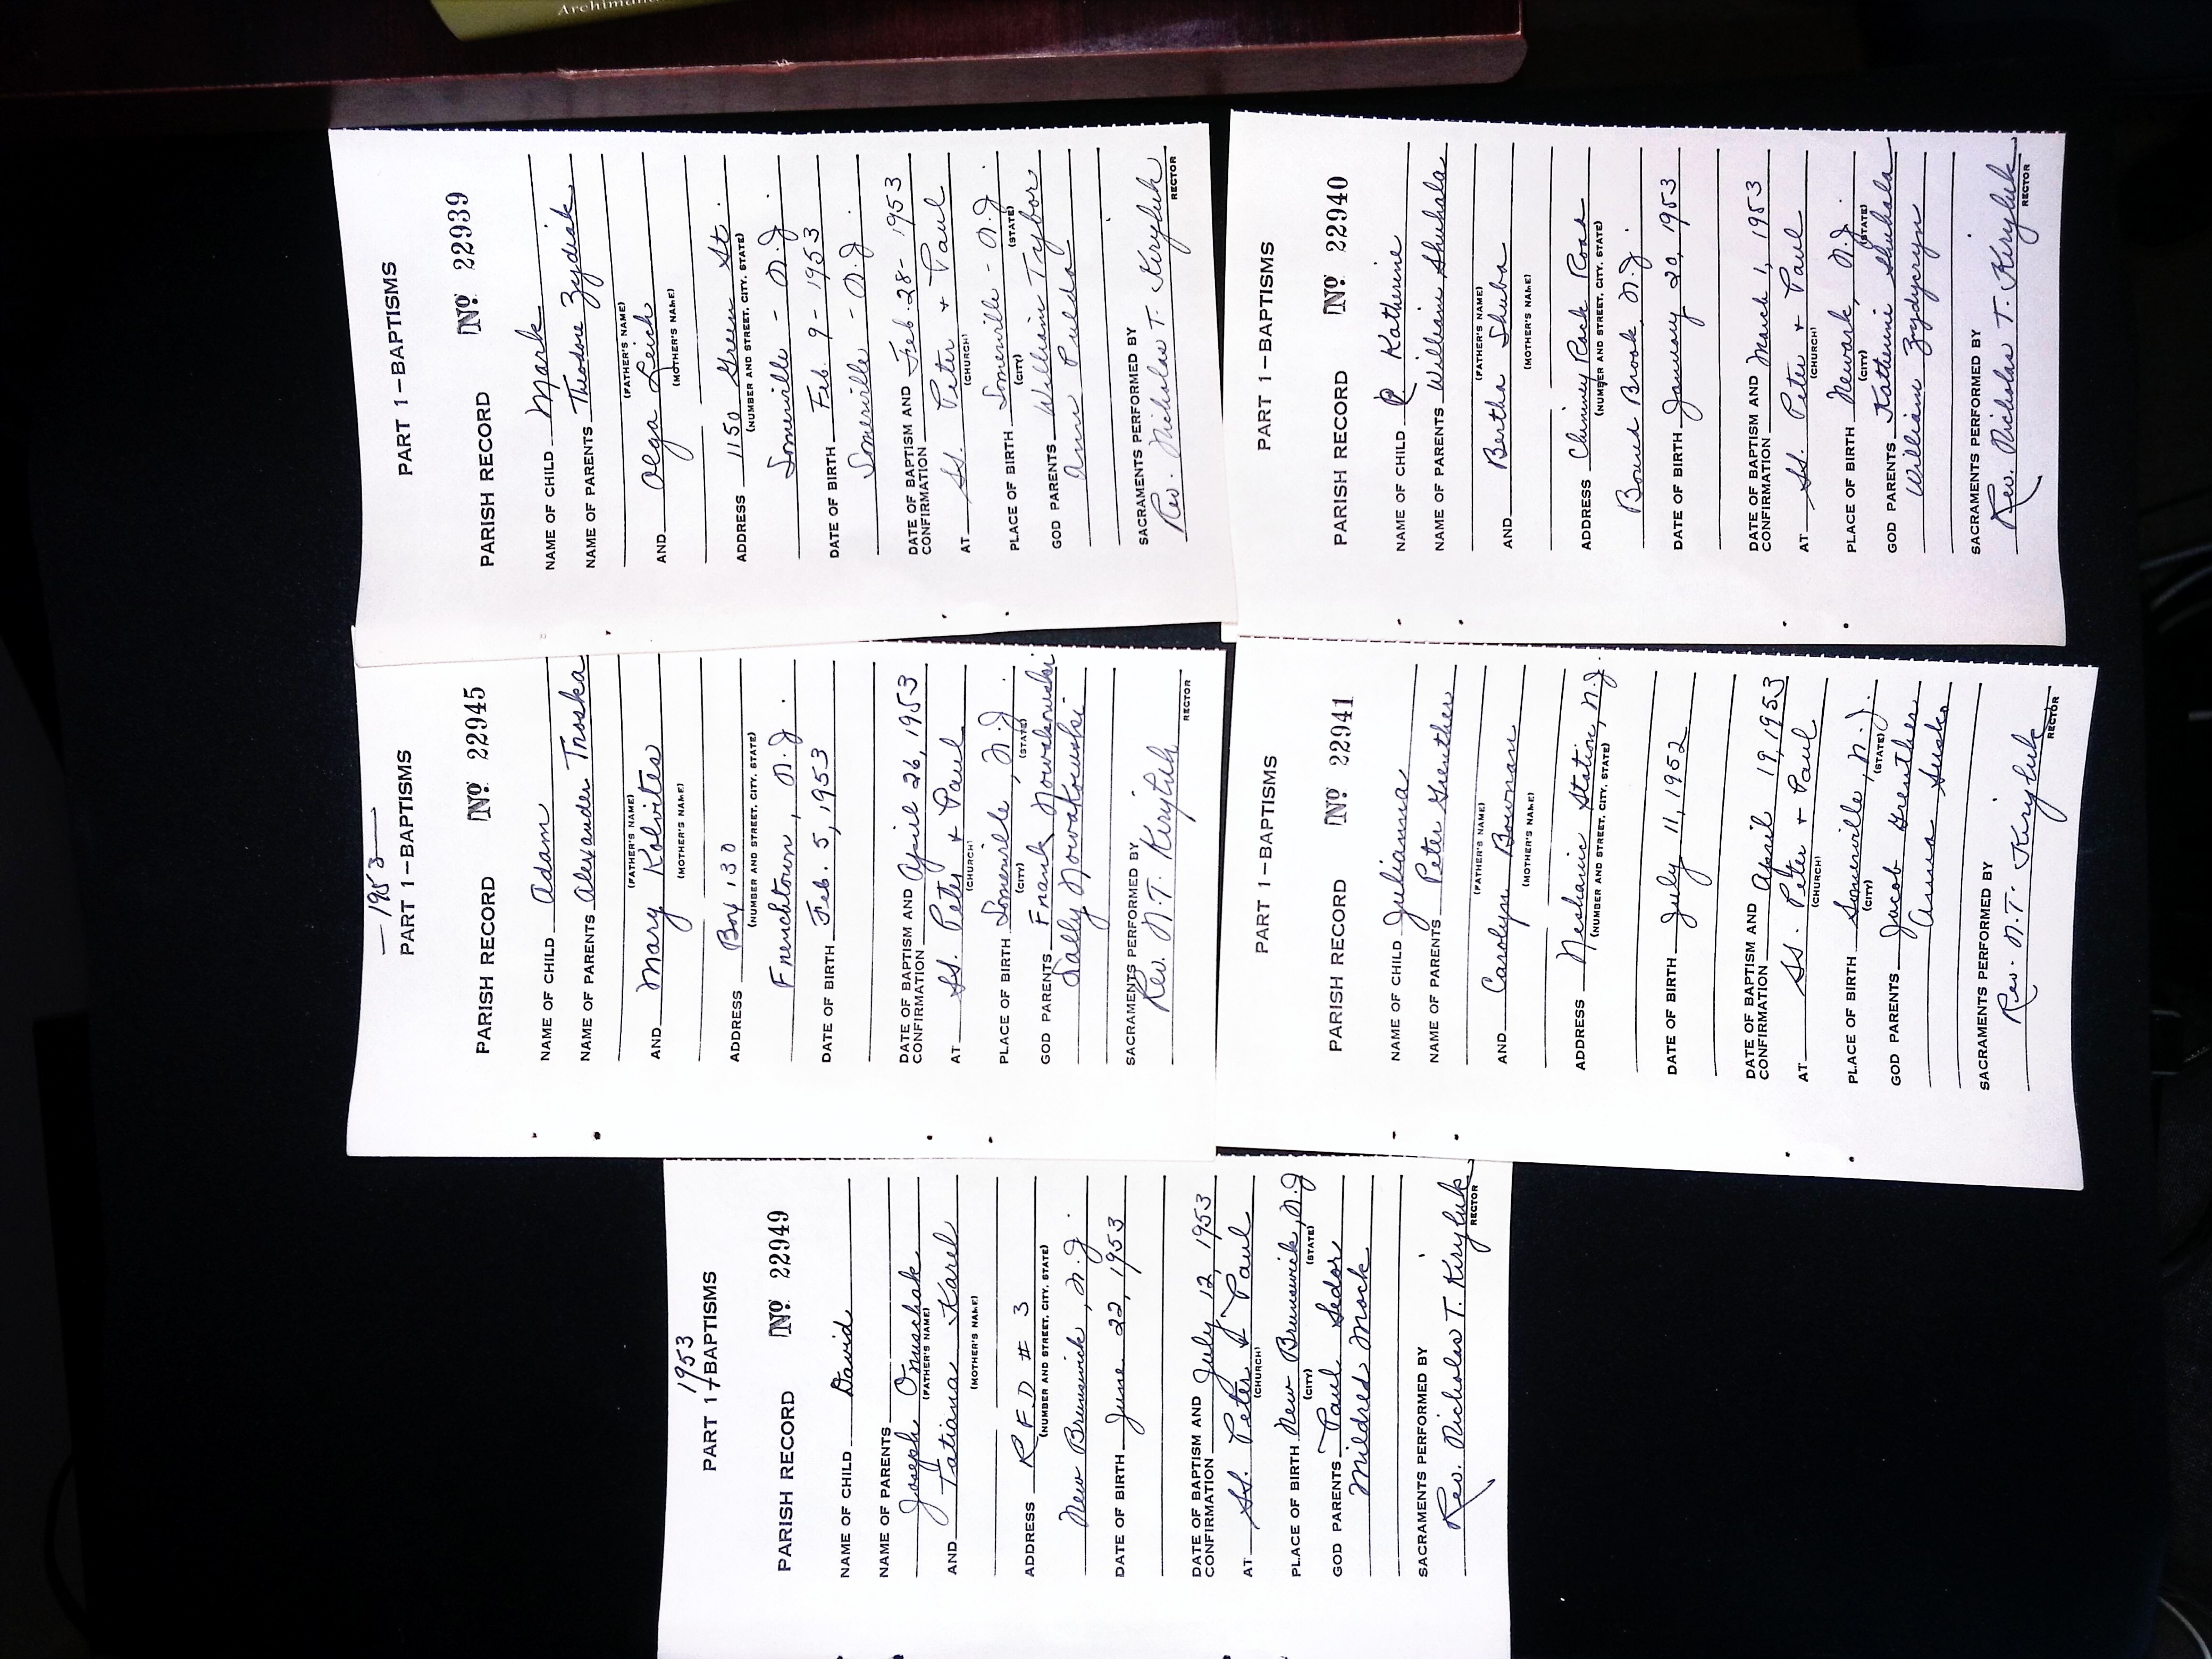 1953
PART 1-BAPTISMS
PARISH RECORD No 22949
NAME OF CHILD David
NAME OF PARENTS
Joseph Onuschak
(FATHER'S NAME)
AND Tatiana Karel
(MOTHER'S NAME)
ADDRESS R.F.D # 3
(NUMBER AND STREET, CITY, STATE)
New Brunswick, N.J.
DATE OF BIRTH June 22, 1953
DATE OF BAPTISM AND
CONFIRMATION July 12, 1953
AT SS. Peter & Paul
(CHURCH)
PLACE OF BIRTH New Brunswick, N.J
(CITY) (STATE)
GOD PARENTS Paul Sedor
Mildred Mock
SACRAMENTS PERFORMED BY
Rev. Nicholas T. Kiryluk
RECTOR
—1953—
PART 1-BAPTISMS
PARISH RECORD No 22945
NAME OF CHILD Adam
NAME OF PARENTS Alexander Troska
(FATHER'S NAME)
AND Mary Kolvites
(MOTHER'S NAME)
ADDRESS Box 130
(NUMBER AND STREET, CITY, STATE)
Frenchtown, N.J.
DATE OF BIRTH Feb. 5, 1953
DATE OF BAPTISM AND
CONFIRMATION April 26, 1953
AT SS. Peter + Paul
(CHURCH)
PLACE OF BIRTH Somerville, N.J.
(CITY) (STATE)
GOD PARENTS Frank Nowakowski
Sally Nowakowski
SACRAMENTS PERFORMED BY
Rev. N.T. Kiryluk
RECTOR
PART 1-BAPTISMS
PARISH RECORD No 22939
NAME OF CHILD Mark
NAME OF PARENTS Theodore Zydiak
(FATHER'S NAME)
AND Olga Leich
(MOTHER'S NAME)
ADDRESS 1150 Green St.
(NUMBER AND STREET, CITY, STATE)
Somerville - N.J.
DATE OF BIRTH Feb. 9- 1953
Somerville - N.J.
DATE OF BAPTISM AND
CONFIRMATION Feb. 28- 1953
AT SS. Peter + Paul
(CHURCH)
PLACE OF BIRTH Somerville - N.J.
(CITY) (STATE)
GOD PARENTS William Tybor
Ann Pulda
SACRAMENTS PERFORMED BY
Rev. Nicholas T. Kiryluk
RECTOR
PART 1-BAPTISMS
PARISH RECORD No 22941
NAME OF CHILD Julianna
NAME OF PARENTS Peter Grenther
(FATHER'S NAME)
AND Carolyn Bowman
(MOTHER'S NAME)
ADDRESS Neshanic Station, N.J.
(NUMBER AND STREET, CITY, STATE)
DATE OF BIRTH July 11, 1952
DATE OF BAPTISM AND
CONFIRMATION April 19, 1953
AT SS. Peter + Paul
(CHURCH)
PLACE OF BIRTH Somerville, N.J.
(CITY) (STATE)
GOD PARENTS Jacob Grenther
Anna Susko
SACRAMENTS PERFORMED BY
Rev. N.T. Kiryluk
RECTOR
PART 1-BAPTISMS
PARISH RECORD No 22940
NAME OF CHILD P. Katherine
NAME OF PARENTS William Shuhala
(FATHER'S NAME)
AND Bertha Shuba
(MOTHER'S NAME)
ADDRESS Chimney Rock Road
(NUMBER AND STREET, CITY, STATE)
Bound Brook, N.J.
DATE OF BIRTH January 20, 1953
DATE OF BAPTISM AND
CONFIRMATION March 1, 1953
AT SS. Peter + Paul
(CHURCH)
PLACE OF BIRTH Newark, N.J.
(CITY) (STATE)
GOD PARENTS Katherine Shuhala
William Zydycryn
SACRAMENTS PERFORMED BY
Rev. Nicholas T. Kiryluk
RECTOR